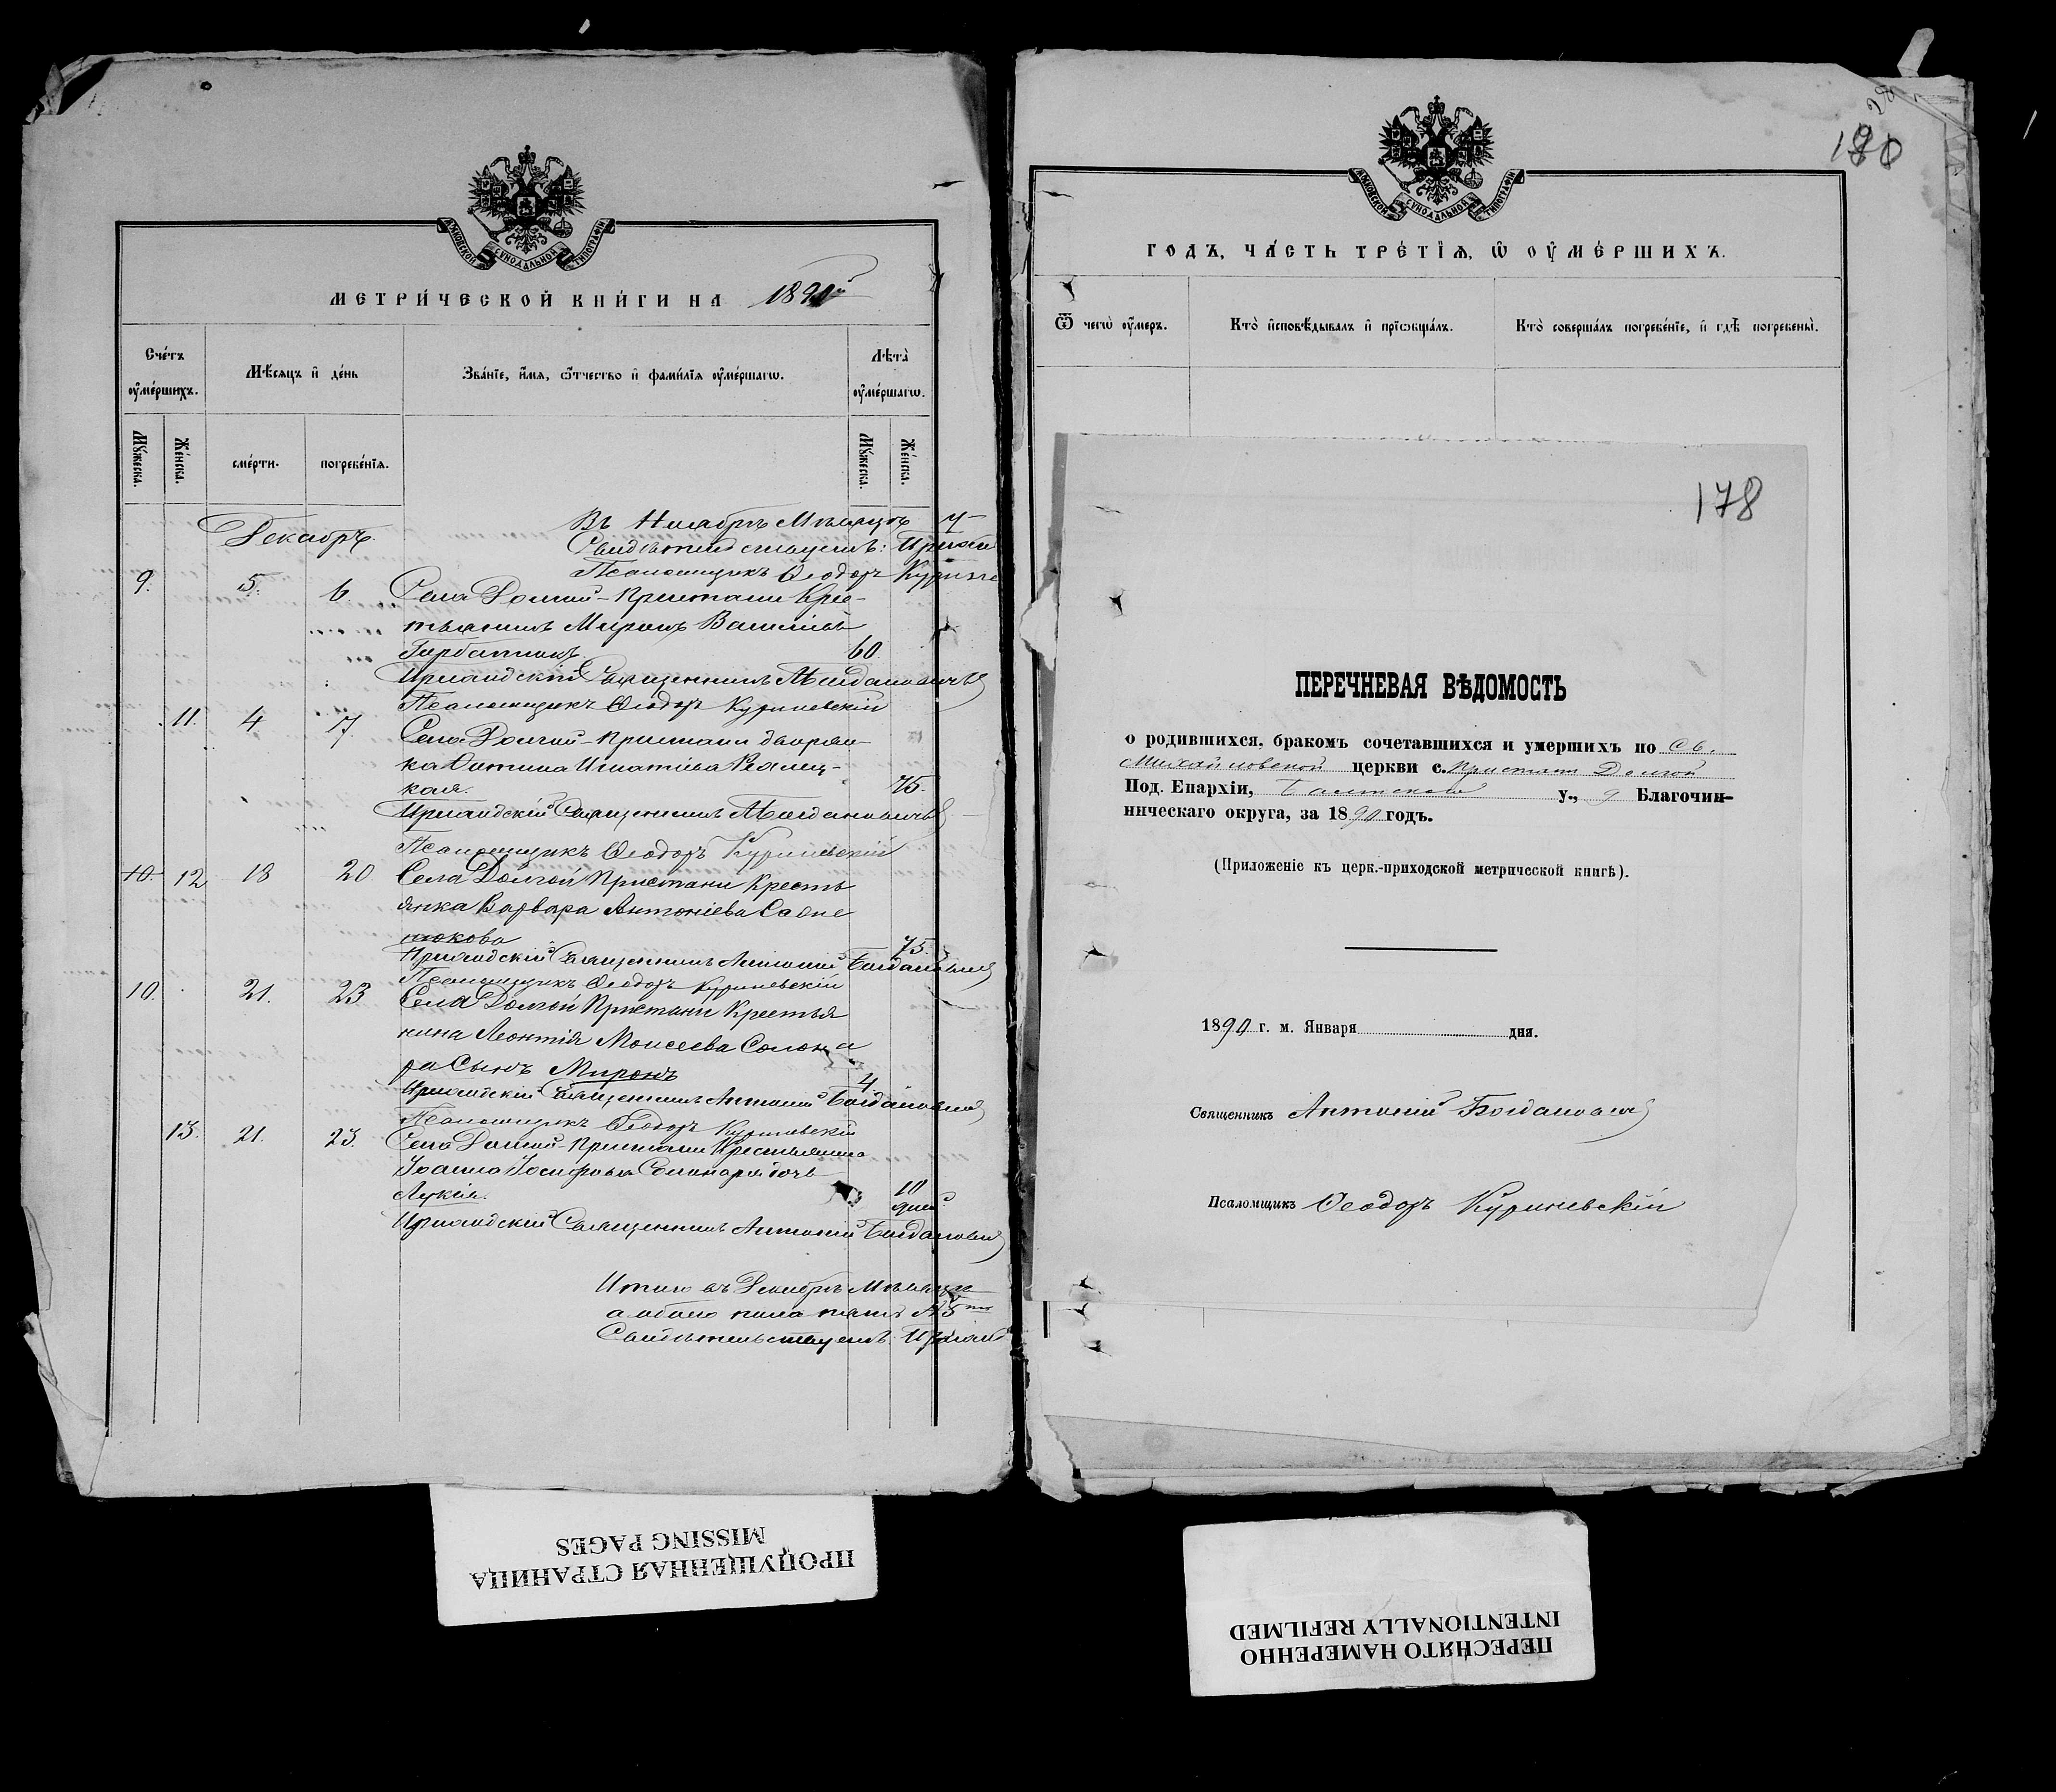 МЕТРИ́ЧЕСКОЙ КНИ́ГИ НА 1890й
Сче́тъ ᲂу҆ме́ршихъ.
Мѣ́сяцъ и҆ де́нь
Зва́нїе, и҆́мя, ѻ҆́тчество и҆ фами́лїя ᲂу҆ме́ршагѡ.
Лѣта̀ ᲂу҆ме́ршагѡ.
Мꙋ́жеска.
Же́нска.
сме́рти.
погребе́нїя.
Мꙋ́жеска.
Же́нска.
Декабрь.
Въ Ноябрѣ Мѣсяцѣ у
Свидѣтельствуемъ: Приход
Псаломщикъ Ѳеодоръ Куринев
9. 5. 6. Села Долгой-Пристани Крес-
тьянинъ Миронъ Васильев
Горбатюкъ. 60.
Приходскій Священникъ А Богдановичъ
Псаломщикъ Ѳеодоръ Куриневскій
11. 4 7. Села Долгой-Пристани дворян-
ка Игнатіева
кая. 75.
Приходскій Священникъ А Богдановичъ
Псаломщикъ Ѳеодоръ Куриневскій
10. 12 18 20 Села Долгой Пристани Кресть
янка Варвара Антоніева Сапе
нюкова 75.
Приходскій Священникъ Антоній Богдановичъ
Псаломщикъ Ѳеодоръ Куриневскій
10. 21. 23 Села Долгой Пристани Крестья
нина Леонтія Моисеева Солона
ра Сынъ Миронъ 4
Приходскій Священникъ Антоній Богдановичъ
Псаломщикъ Ѳеодоръ Куриневскій
13. 21. 23. Села Долгой-Пристани Крестьянина
Іоанна Іосифова Солонара дочь
Лукія. 10 дней
Приходскій Священникъ Антоній Богдановичъ
Итого въ Декабрѣ Мѣсяцѣ
обоего пола 5
Свидѣтельствуемъ: Приход
МОСКОВСКОЙ СУНОДАЛЬНОЙ ТИПОГРАФІИ
180
28
ГО́ДЪ, ЧА́СТЬ ТРЕ́ТЇЯ, Ѡ҆ ОУ҆МЕ́РШИХЪ.
Ѿ чегѡ̀ ᲂу҆́меръ.
Кто̀ и҆сповѣ́дывалъ и҆ прїѡбща́лъ.
Кто̀ соверша́лъ погребе́нїе, и҆ гдѣ̀ погребены̀.
178
ПЕРЕЧНЕВАЯ ВѢДОМОСТЬ
о родившихся, бракомъ сочетавшихся и умершихъ по Св.
Михайловской церкви с. Пристани Долгой
Под. Епархіи, Балтскаго у., 9 Благочин-
ническаго округа, за 1890 годъ.
(Приложеніе къ церк.-приходской метрической книгѣ).
1890 г. м. Января дня.
Священникъ Антоній Богдановичъ
Псаломщикъ Ѳеодоръ Куриневскій
ПРОПУЩЕННАЯ СТРАНИЦА
MISSING PAGES
ПЕРЕСНЯТО НАМЕРЕННО
INTENTIONALLY REFILMED